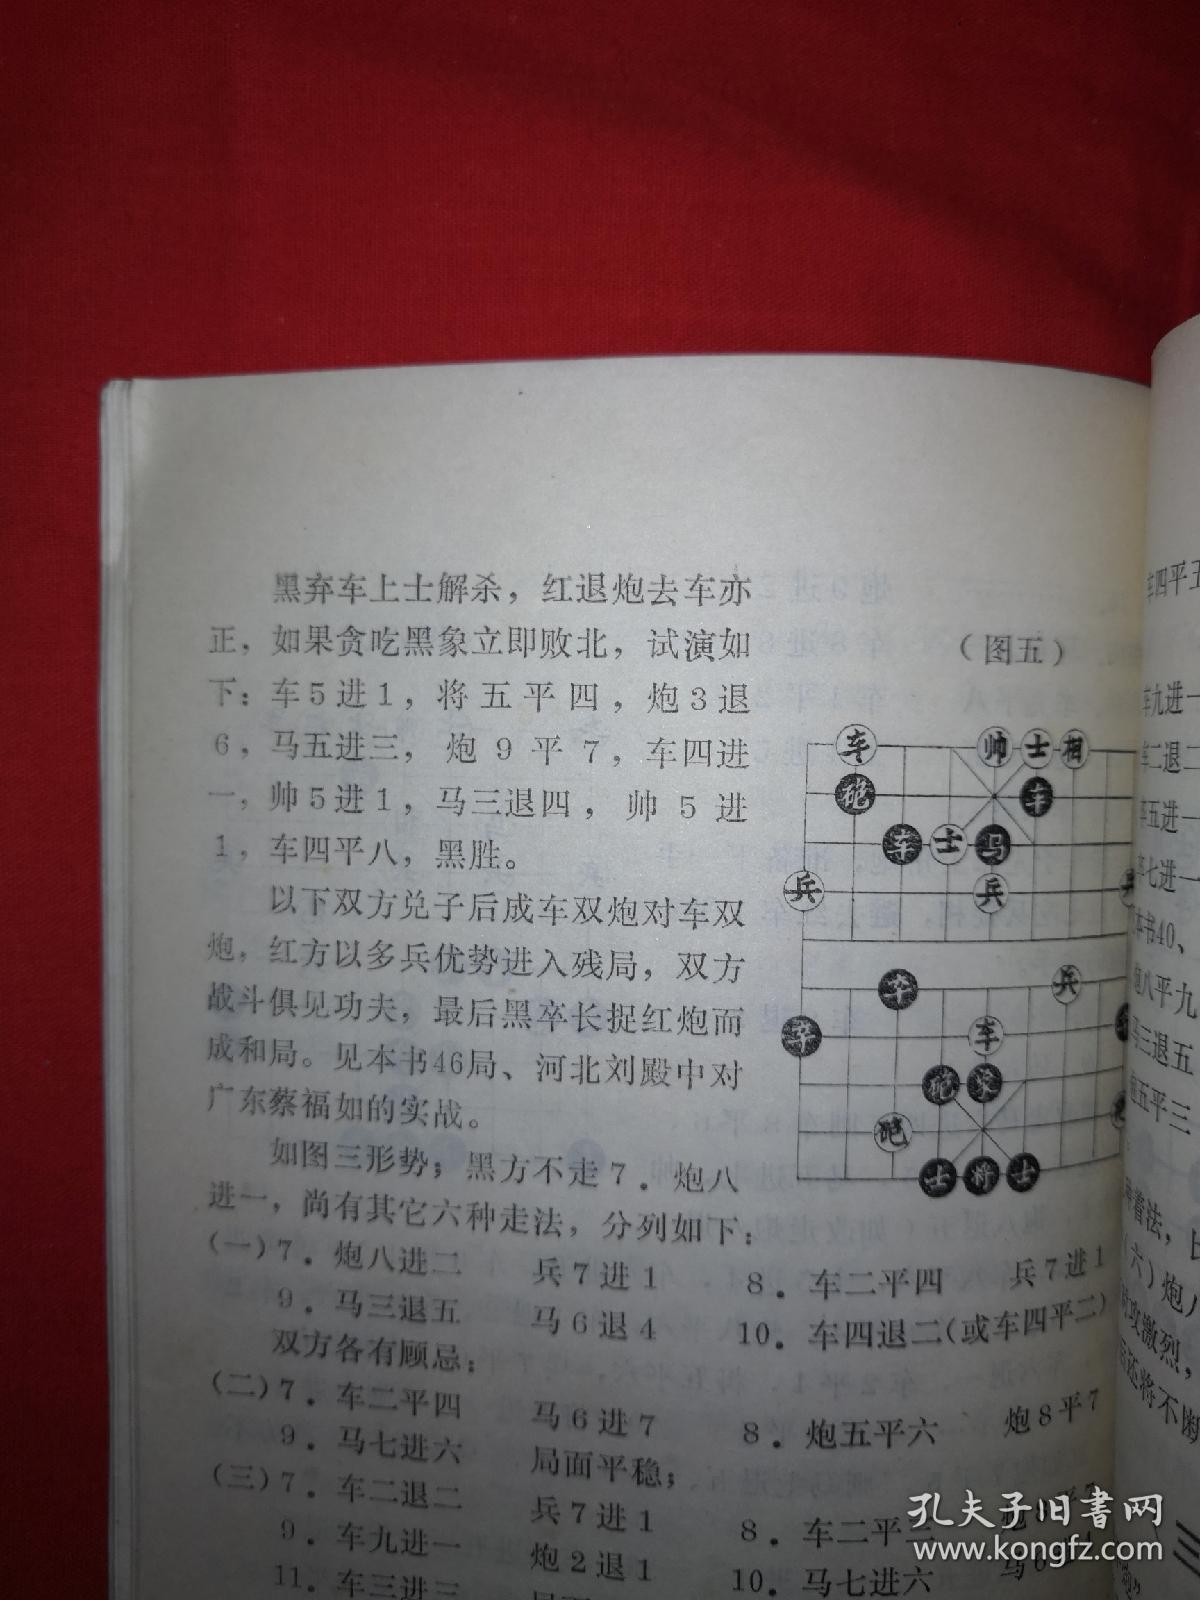 黑弃车上士解杀，红退炮去车亦
正，如果贪吃黑象立即败北，试演如
下：车5进1，将五平四，炮3退
6，马五进三，炮9平7，车四进
一，帅5进1，马三退四，帅5进
1，车四平八，黑胜。
以下双方兑子后成车双炮对车双
炮，红方以多兵优势进入残局，双方
战斗俱见功夫，最后黑卒长捉红炮而
成和局。见本书46局、河北刘殿中对
广东蔡福如的实战。
如图三形势；黑方不走7．炮八
进一，尚有其它六种走法，分列如下：
（图五）
车 帅 士 相
砲 车
车 士 马
兵 兵
卒 兵
卒 车
砲 象
砲
士 将 士
（一）7．炮八进二 兵7进1 8．车二平四 兵7进1
9．马三退五 马6退4 10．车四退二（或车四平二）
双方各有顾忌；
（二）7．车二平四 马6进7 8．炮五平六 炮8平7
9．马七进六 局面平稳；
（三）7．车二退二 兵7进1 8．车二平三
9．车九进一 炮2退1 10．马七进六
11．车三进三
车四平五
车九进一
车二退二
车五进一
平七进一
本书40、
炮八平九
马三退五
炮五平三
种着法，
（六）炮八
对攻激烈，
还将不断
孔夫子旧书网
www.kongfz.com